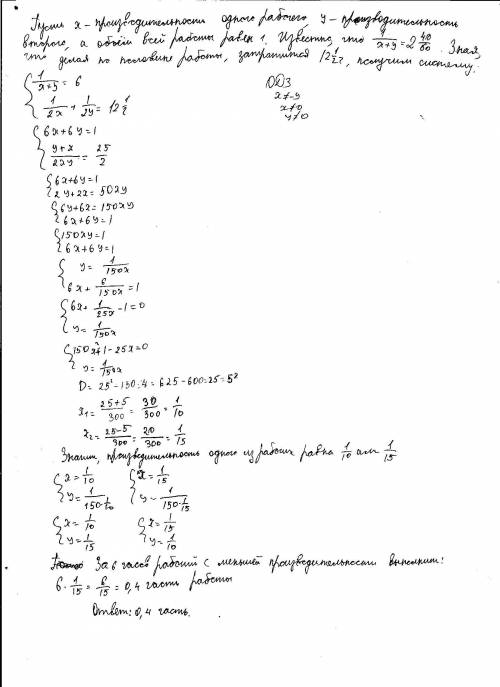 Пусть x - производительность одного рабочего, y - производительность
второго, а объём всей работы равен 1. Известно, что 1/(x+y) = 2 40/60. Зная,
что делая по половине работы, затратится 12 1/2 ч, получим систему:
{ 1/(x+y) = 6
1/(2x) + 1/(2y) = 12 1/2
ОДЗ
x≠-y
x≠0
y≠0
{ 6x+6y=1
(y+x)/(2xy) = 25/2
{ 6x+6y=1
2y+2x=50xy
{ 6y+6x=150xy
6x+6y=1
{ 150xy=1
6x+6y=1
{ y = 1/(150x)
6x + 6/(150x) = 1
{ 6x + 1/(25x) - 1 = 0
y = 1/(150x)
{ 150x²+1-25x=0
y = 1/(150x)
D = 25² - 150·4 = 625 - 600 = 25 = 5²
x₁ = (25+5)/300 = 30/300 = 1/10
x₂ = (25-5)/300 = 20/300 = 1/15
Значит, производительность одного из рабочих равна 1/10 или 1/15
{ x = 1/10
y = 1/(150·1/10)
{ x = 1/15
y = 1/(150·1/15)
{ x = 1/10
y = 1/15
{ x = 1/15
y = 1/10
За 6 часов рабочий с меньшей производительностью выполнит:
6 · 1/15 = 6/15 = 0,4 часть работы
Ответ: 0,4 часть.